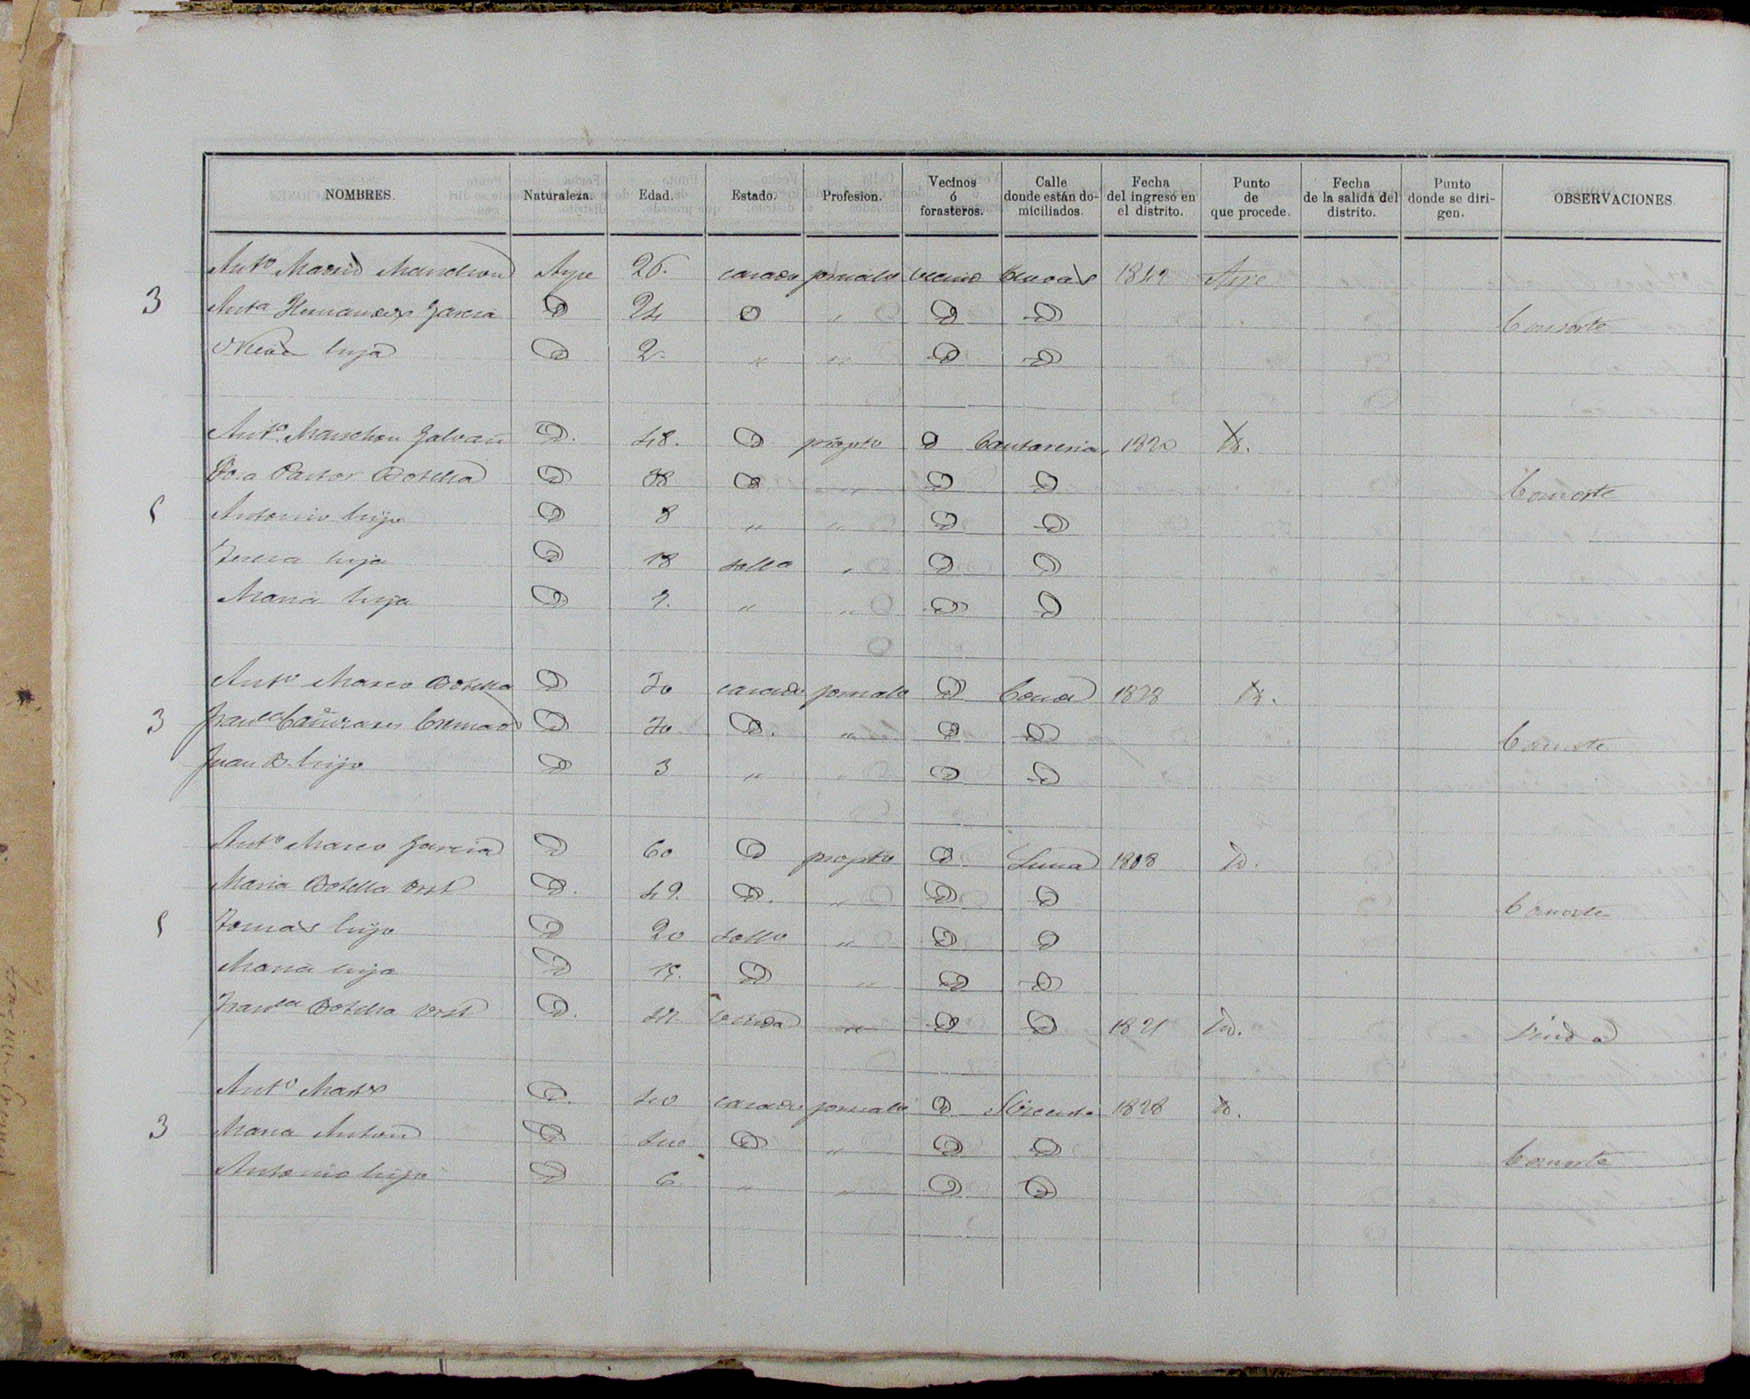 NOMBRES. Naturaleza. Edad. Estado. Profesion. Vecinos ó forasteros. Calle donde están domiciliados. Fecha del ingreso en el distrito. Punto de que procede. Fecha de la salida del distrito. Punto donde se dirigen. OBSERVACIONES
Antº Aspe 26. casado jornalº vecino Cuevas 1842 Aspe
3 Antª Hernandez Garcia D 24 D " D D Consorte
hija D 2 " " D D
Antº Manchon Galvañ D. 48. D propto D Cantareria 1820 Id.
Pastor Botella D 38 D " D D Consorte
5 Antonio hijo D 8 " " D D
Teresa hija D 18 solta " D D
Maria hija D " " D D
Antº Marco Botella D 30 casado jornalo D 1828 Id.
3 Franca Cañizares Cremades D 30 D. " D D Consorte
Juan B. hijo D 3 " " D D
Antº Marco Garcia D 60 D propto D Luna 1808 Id.
Maria Botella D. 49. D. " D D Consorte
5 Tomas hijo D 20 solto " D D
Maria hija D 15. D " D D
Franca Botella D. viuda " D D 1821 Id. Viuda
Antº D. 40 casado jornalo D 1828 Id.
3 Maria Anton D D " D D Consorte
Antonio hijo D 6 " " D D